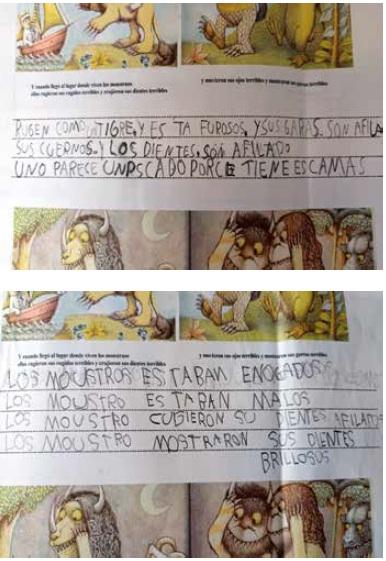 Y cuando llegó al lugar donde viven los monstruos
ellos rugieron sus rugidos terribles y crujieron sus dientes terribles
y movieron sus ojos terribles y mostraron sus garras terribles
RUGEN COMO UNTIGRE, Y ES TA FUROSOS, Y SUS GARAS. SON AFILA
SUS CUERNOS. Y LOS DIENTES, SON AFILADO
UNO PARECE UN PSCADO PORCE TIENE ESCAMAS
Y cuando llegó al lugar donde viven los monstruos
ellos rugieron sus rugidos terribles y crujieron sus dientes terribles
y movieron sus ojos terribles y mostraron sus garras terribles
LOS MOUSTROS ESTABAN ENOGADOS
LOS MOUSTRO ESTABAN MALOS
LOS MOUSTRO CUGIERON SU DIENTES AFILATOS
LOS MOUSTRO MOSTRARON SUS DIENTES
BRILLOSOS